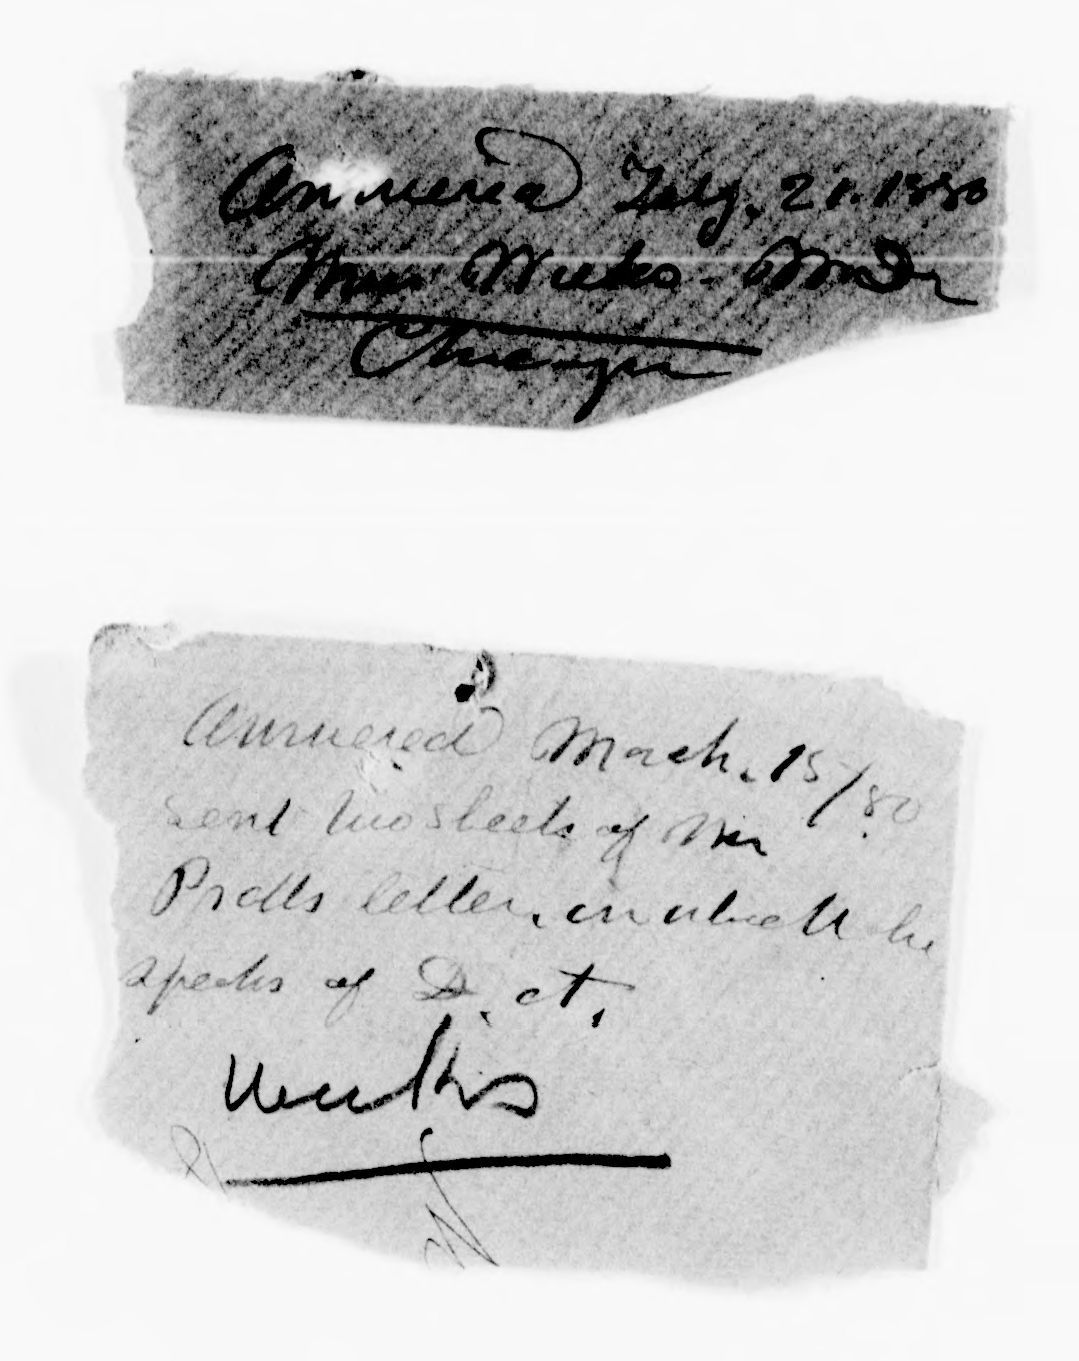 Answered Feby. 21. 1880
Miss Weeks - M. D.
Chicago
Answered March. 15/80
Sent two sheets of Mr
Pratts letter, in which he
speaks of D. ct.
Weeks